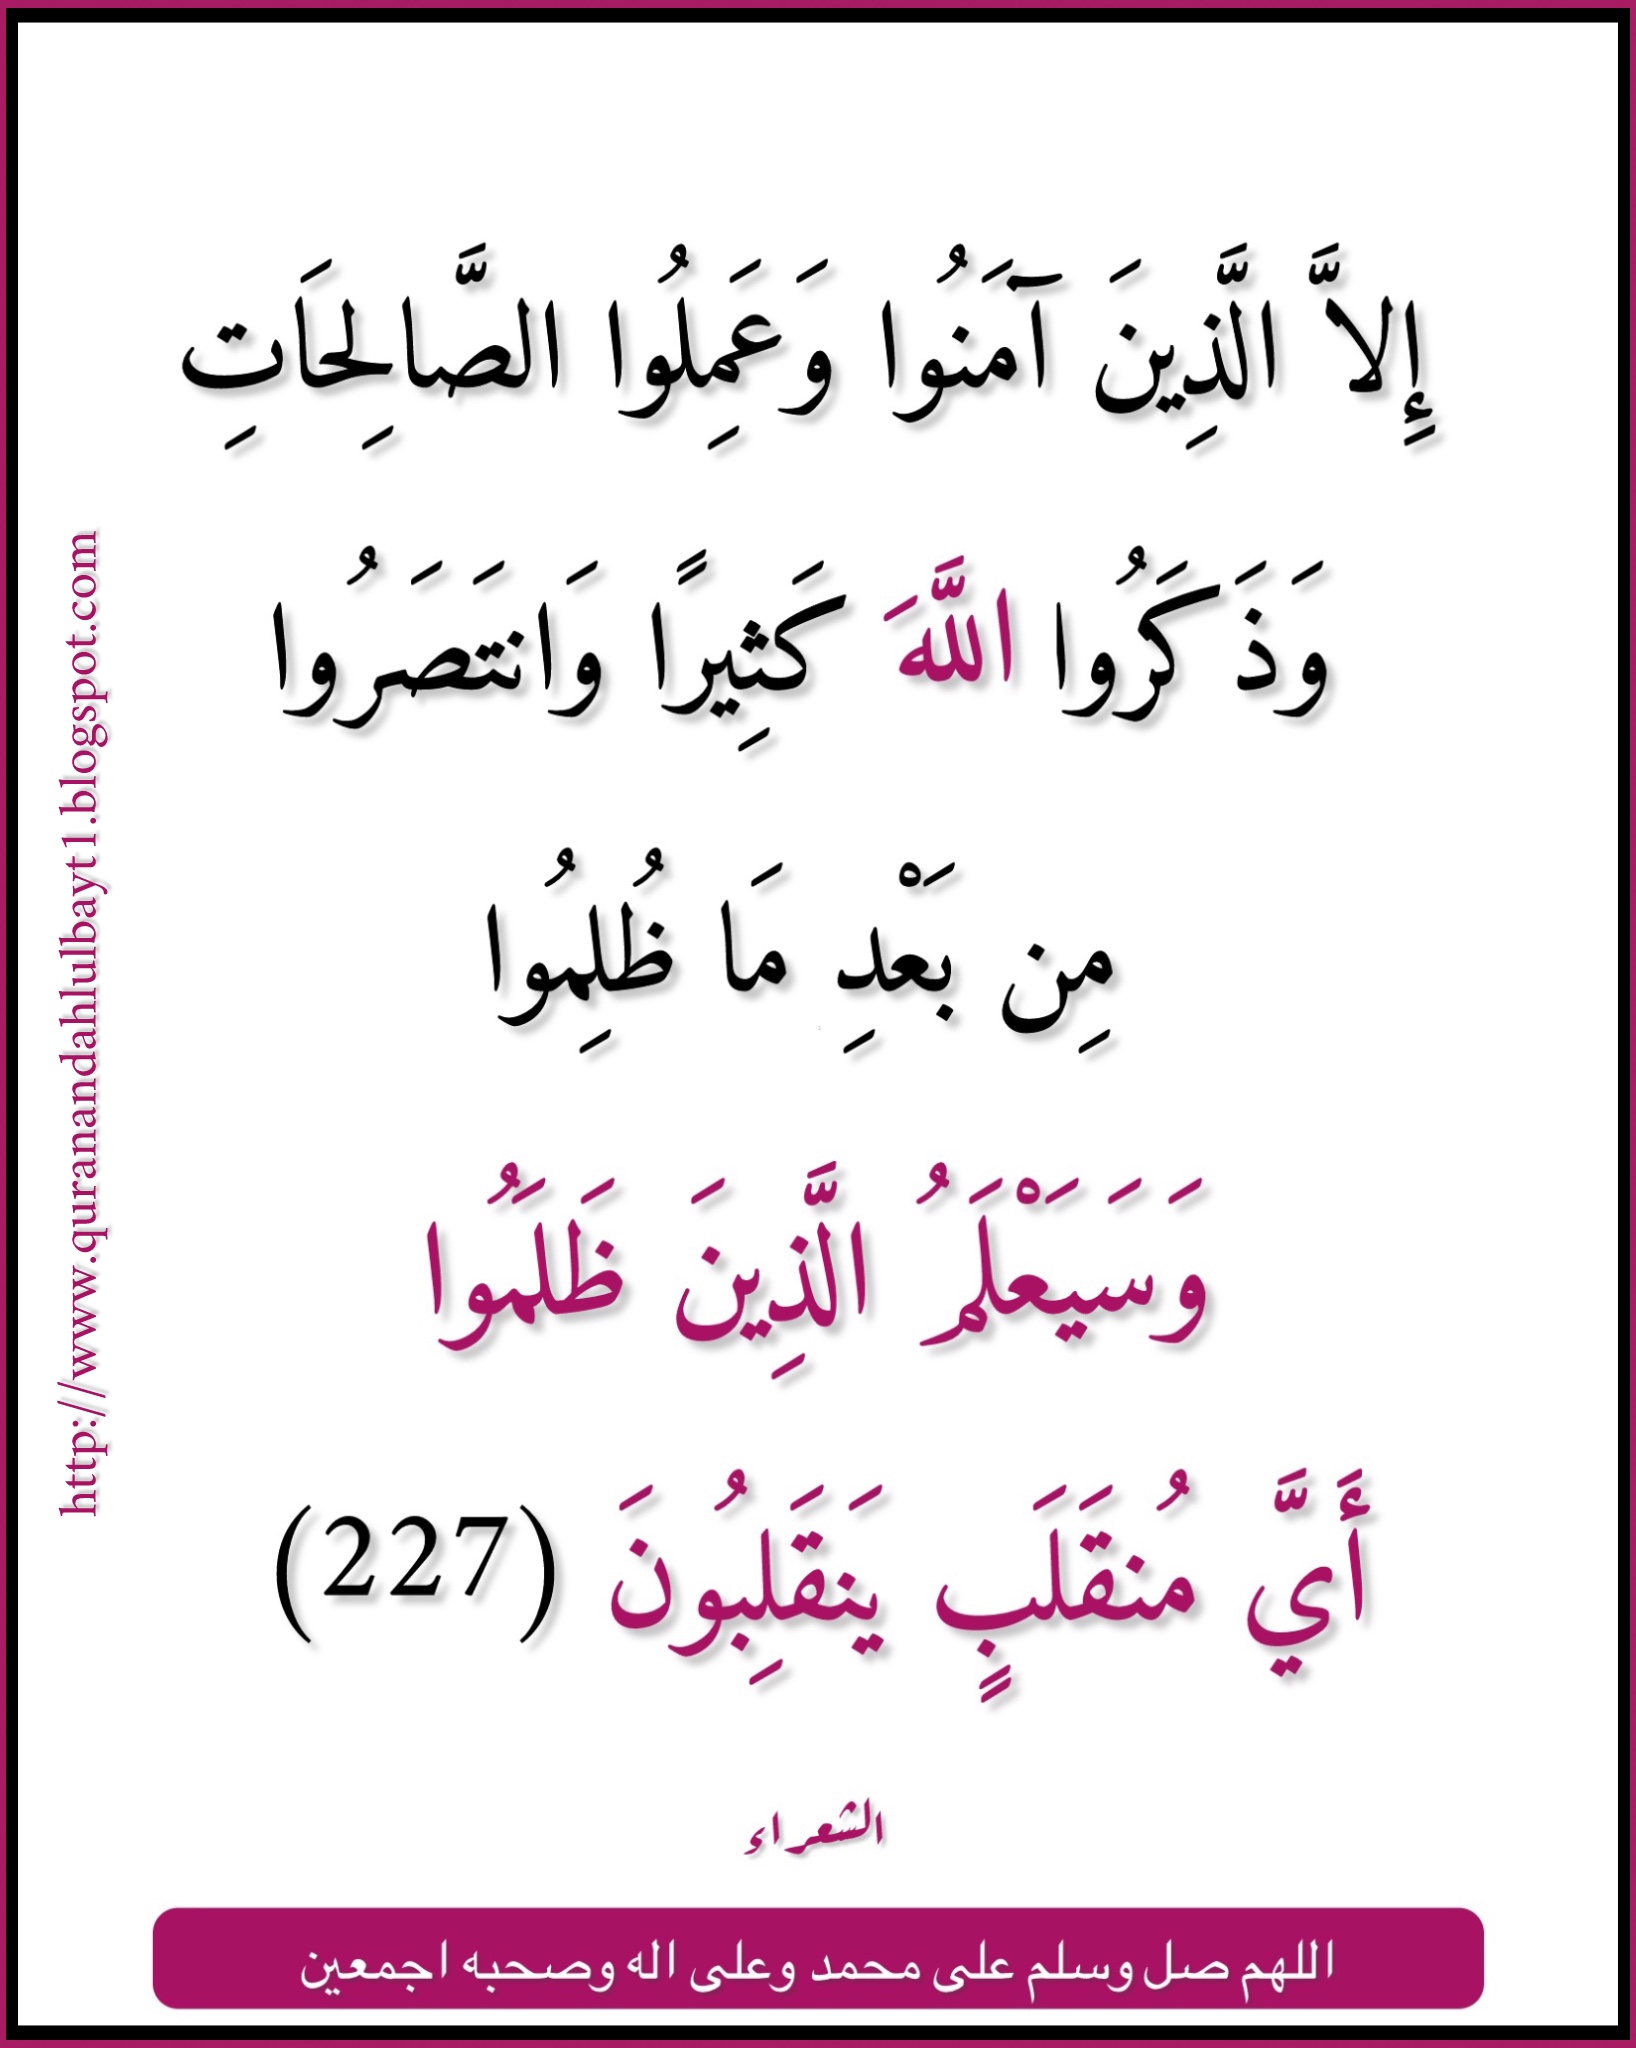 إِلاَّ الَّذِينَ آمَنُوا وَعَمِلُوا الصَّالِحَاتِ
وَذَكَرُوا اللَّهَ كَثِيرًا وَانتَصَرُوا
مِن بَعْدِ مَا ظُلِمُوا
وَسَيَعْلَمُ الَّذِينَ ظَلَمُوا
أَيَّ مُنقَلَبٍ يَنقَلِبُونَ (227)
الشعراء
اللهم صل وسلم على محمد وعلى اله وصحبه اجمعين
http://www.quranandahlulbayt1.blogspot.com